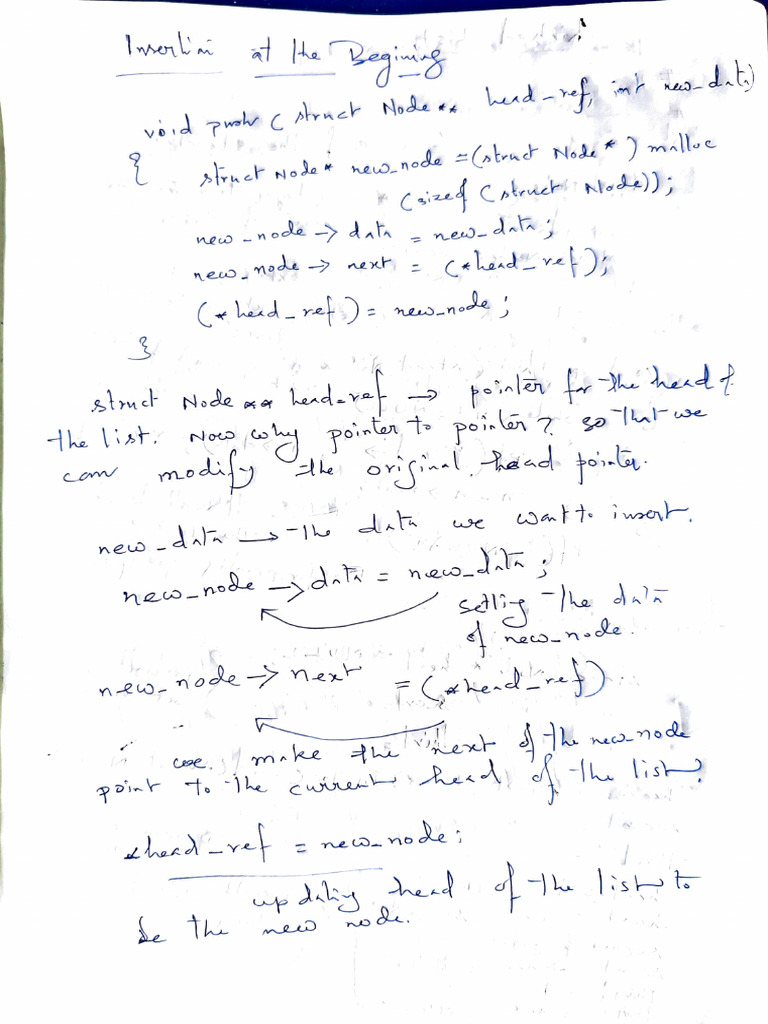 Insertion at the Begining
void push (struct Node** head_ref, int new_data)
{ struct Node* new_node = (struct Node*) malloc
(sizeof (struct Node));
new_node -> data = new_data;
new_node -> next = (*head_ref);
(*head_ref) = new_node;
}
struct Node** head_ref → pointer for the head of
the list. Now why pointer to pointer? so that we
can modify the original head pointer.
new_data → the data we want to insert.
new_node -> data = new_data;
setting the data
of new_node.
new_node -> next = (*head_ref)
we make the next of the new_node
point to the current head of the list.
*head_ref = new_node;
updating head of the list to
be the new node.